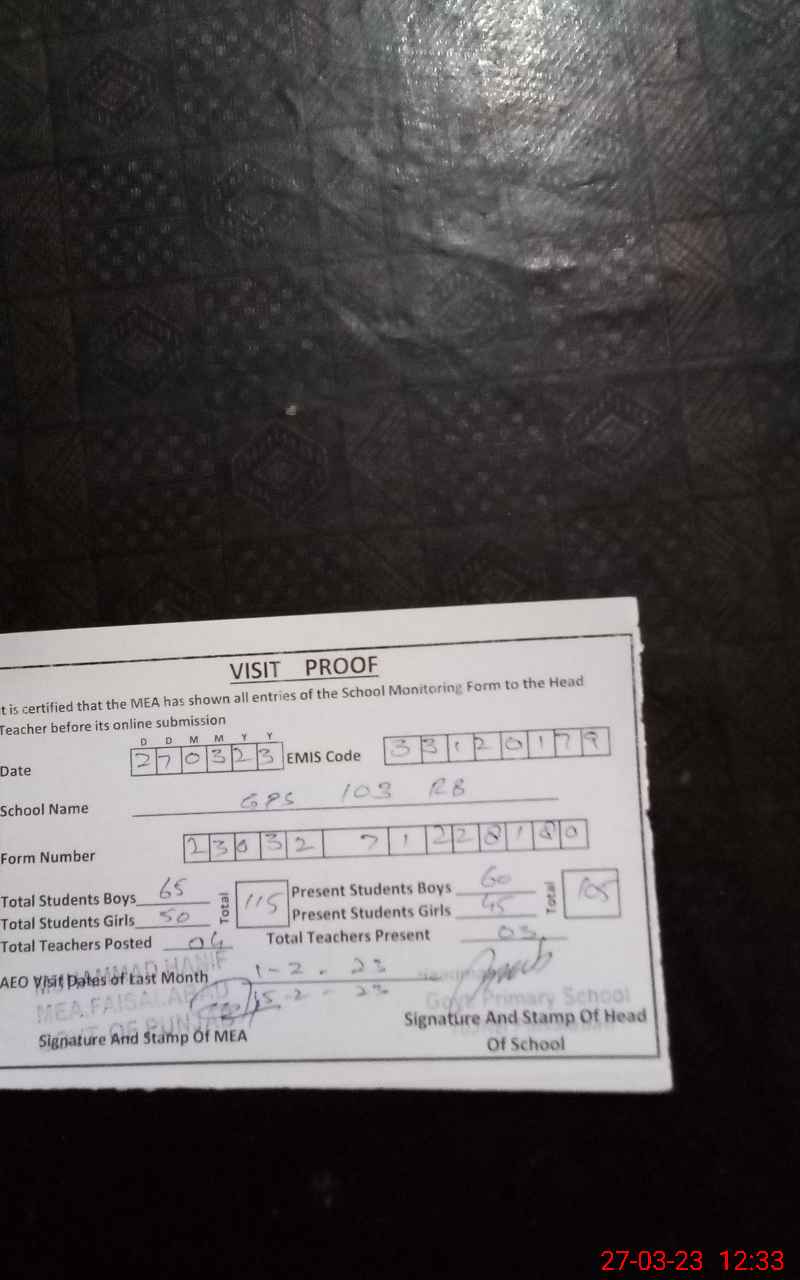 VISIT PROOF
t is certified that the MEA has shown all entries of the School Monitoring Form to the Head
Teacher before its online submission
D D M M Y Y
Date 270323 EMIS Code 33120179
School Name GPS 103 RB
Form Number 23032 71228180
Total Students Boys 65 Total 115 Present Students Boys 60 Total 105
Total Students Girls 50 Present Students Girls 45
Total Teachers Posted 04 Total Teachers Present 03
AEO Visit Dates of Last Month 1-2-23
15-2-23
HANIF
MEA.FAISALABAD
GOVT OF PUNJAB
Govt Primary School
Signature And Stamp Of MEA
Signature And Stamp Of Head
Of School
27-03-23 12:33